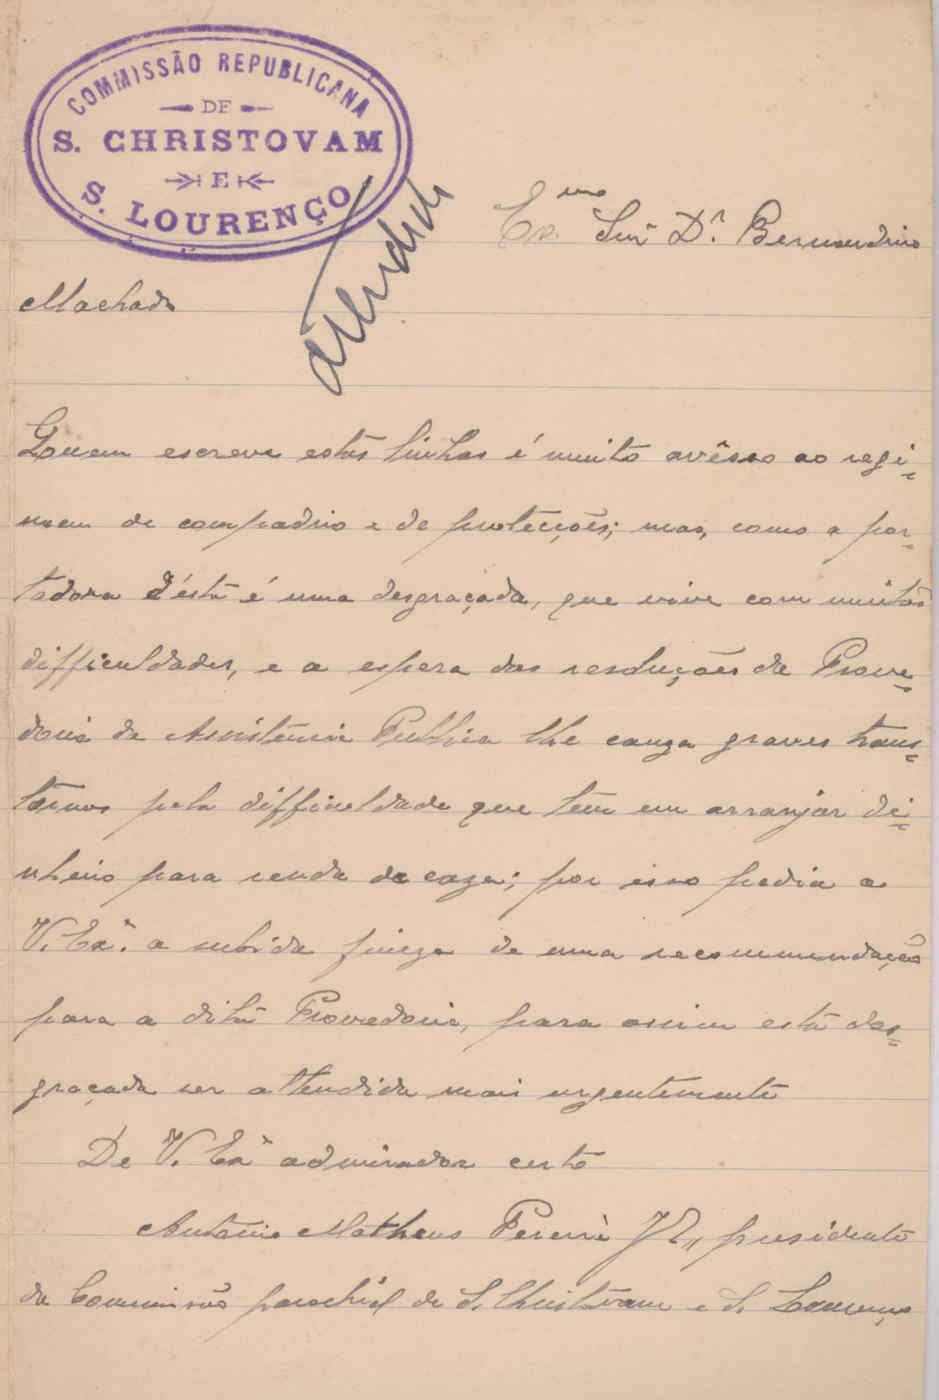 COMMISSÃO REPUBLICANA
DE
S. CHRISTOVAM
E
S. LOURENÇO
attendida
Ex.mo Snr. Dr. Bernardino
Machado
Quem escreve estas linhas é muito avêsso ao regi-
mem de compadrio e de protecções; mas, como a por-
tadora d'ésta é uma desgraçada, que vive com muitas
difficuldades, e a espera das resoluções da Prove-
doria da Assistencia Publica lhe cauza graves trans-
tornos pela difficuldade que tem em arranjar di-
nheiro para renda da caza; por isso pedia a
V. Exª. a subida fineza de uma recommendação
para a dita Provedoria, para assim esta des-
graçada ser attendida mais urgentemente
De V. Exª admirador certo
Antonio Matheus Pereira Jor, presidente
da Commissão parochial de S. Christovam e S. Lourenço